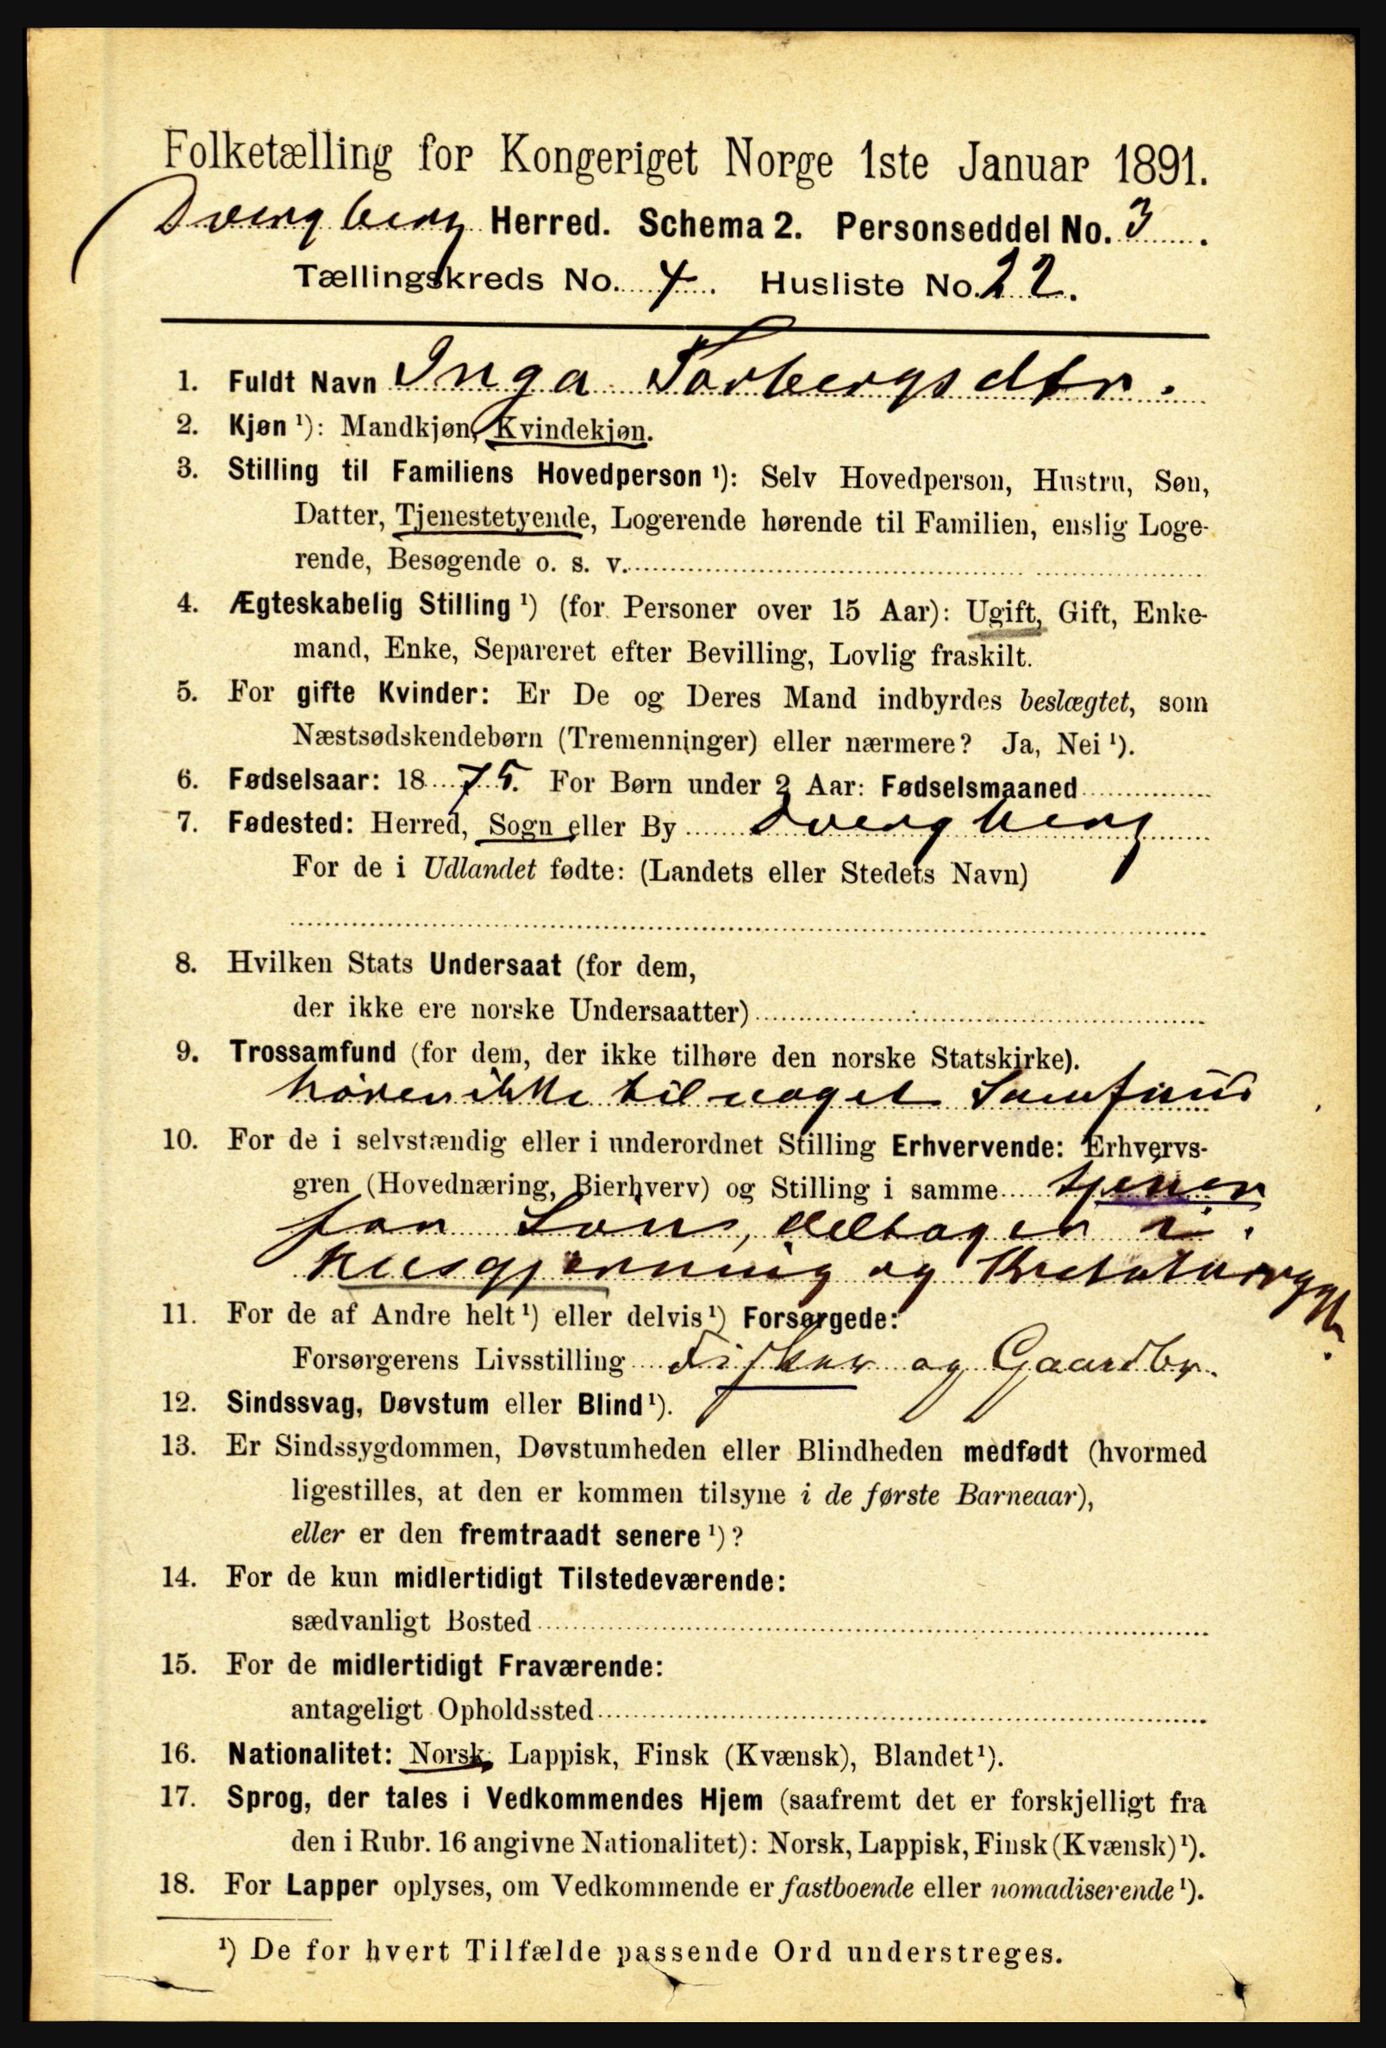 Folketælling for Kongeriget Norge 1ste Januar 1891.
Dvergberg Herred. Schema 2. Personseddel No. 3.
Tællingskreds No. 4. Husliste No. 22.
1. Fuldt Navn Inga Torbergsdtr.
2. Kjøn ¹): Mandkjøn, Kvindekjøn.
3. Stilling til Familiens Hovedperson ¹): Selv Hovedperson, Hustru, Søn,
Datter, Tjenestetyende, Logerende hørende til Familien, enslig Loge-
rende, Besøgende o. s. v.
4. Ægteskabelig Stilling ¹) (for Personer over 15 Aar): Ugift, Gift, Enke-
mand, Enke, Separeret efter Bevilling, Lovlig fraskilt.
5. For gifte Kvinder: Er De og Deres Mand indbyrdes beslægtet, som
Næstsødskendebørn (Tremenninger) eller nærmere? Ja, Nei ¹).
6. Fødselsaar: 1875. For Børn under 2 Aar: Fødselsmaaned
7. Fødested: Herred, Sogn eller By Dvergberg
For de i Udlandet fødte: (Landets eller Stedets Navn)
8. Hvilken Stats Undersaat (for dem,
der ikke ere norske Undersaatter)
9. Trossamfund (for dem, der ikke tilhøre den norske Statskirke).
hører ikke til noget Samfund
10. For de i selvstændig eller i underordnet Stilling Erhvervende: Erhvervs-
gren (Hovednæring, Bierhverv) og Stilling i samme tjener
for Løn, deltager i
husgjerning og Kreaturrygt.
11. For de af Andre helt ¹) eller delvis ¹) Forsørgede:
Forsørgerens Livsstilling Fisker og Gaardbr.
12. Sindssvag, Døvstum eller Blind ¹).
13. Er Sindssygdommen, Døvstumheden eller Blindheden medfødt (hvormed
ligestilles, at den er kommen tilsyne i de første Barneaar),
eller er den fremtraadt senere ¹)?
14. For de kun midlertidigt Tilstedeværende:
sædvanligt Bosted
15. For de midlertidigt Fraværende:
antageligt Opholdssted
16. Nationalitet: Norsk, Lappisk, Finsk (Kvænsk), Blandet ¹).
17. Sprog, der tales i Vedkommendes Hjem (saafremt det er forskjelligt fra
den i Rubr. 16 angivne Nationalitet): Norsk, Lappisk, Finsk (Kvænsk) ¹).
18. For Lapper oplyses, om Vedkommende er fastboende eller nomadiserende ¹).
¹) De for hvert Tilfælde passende Ord understreges.